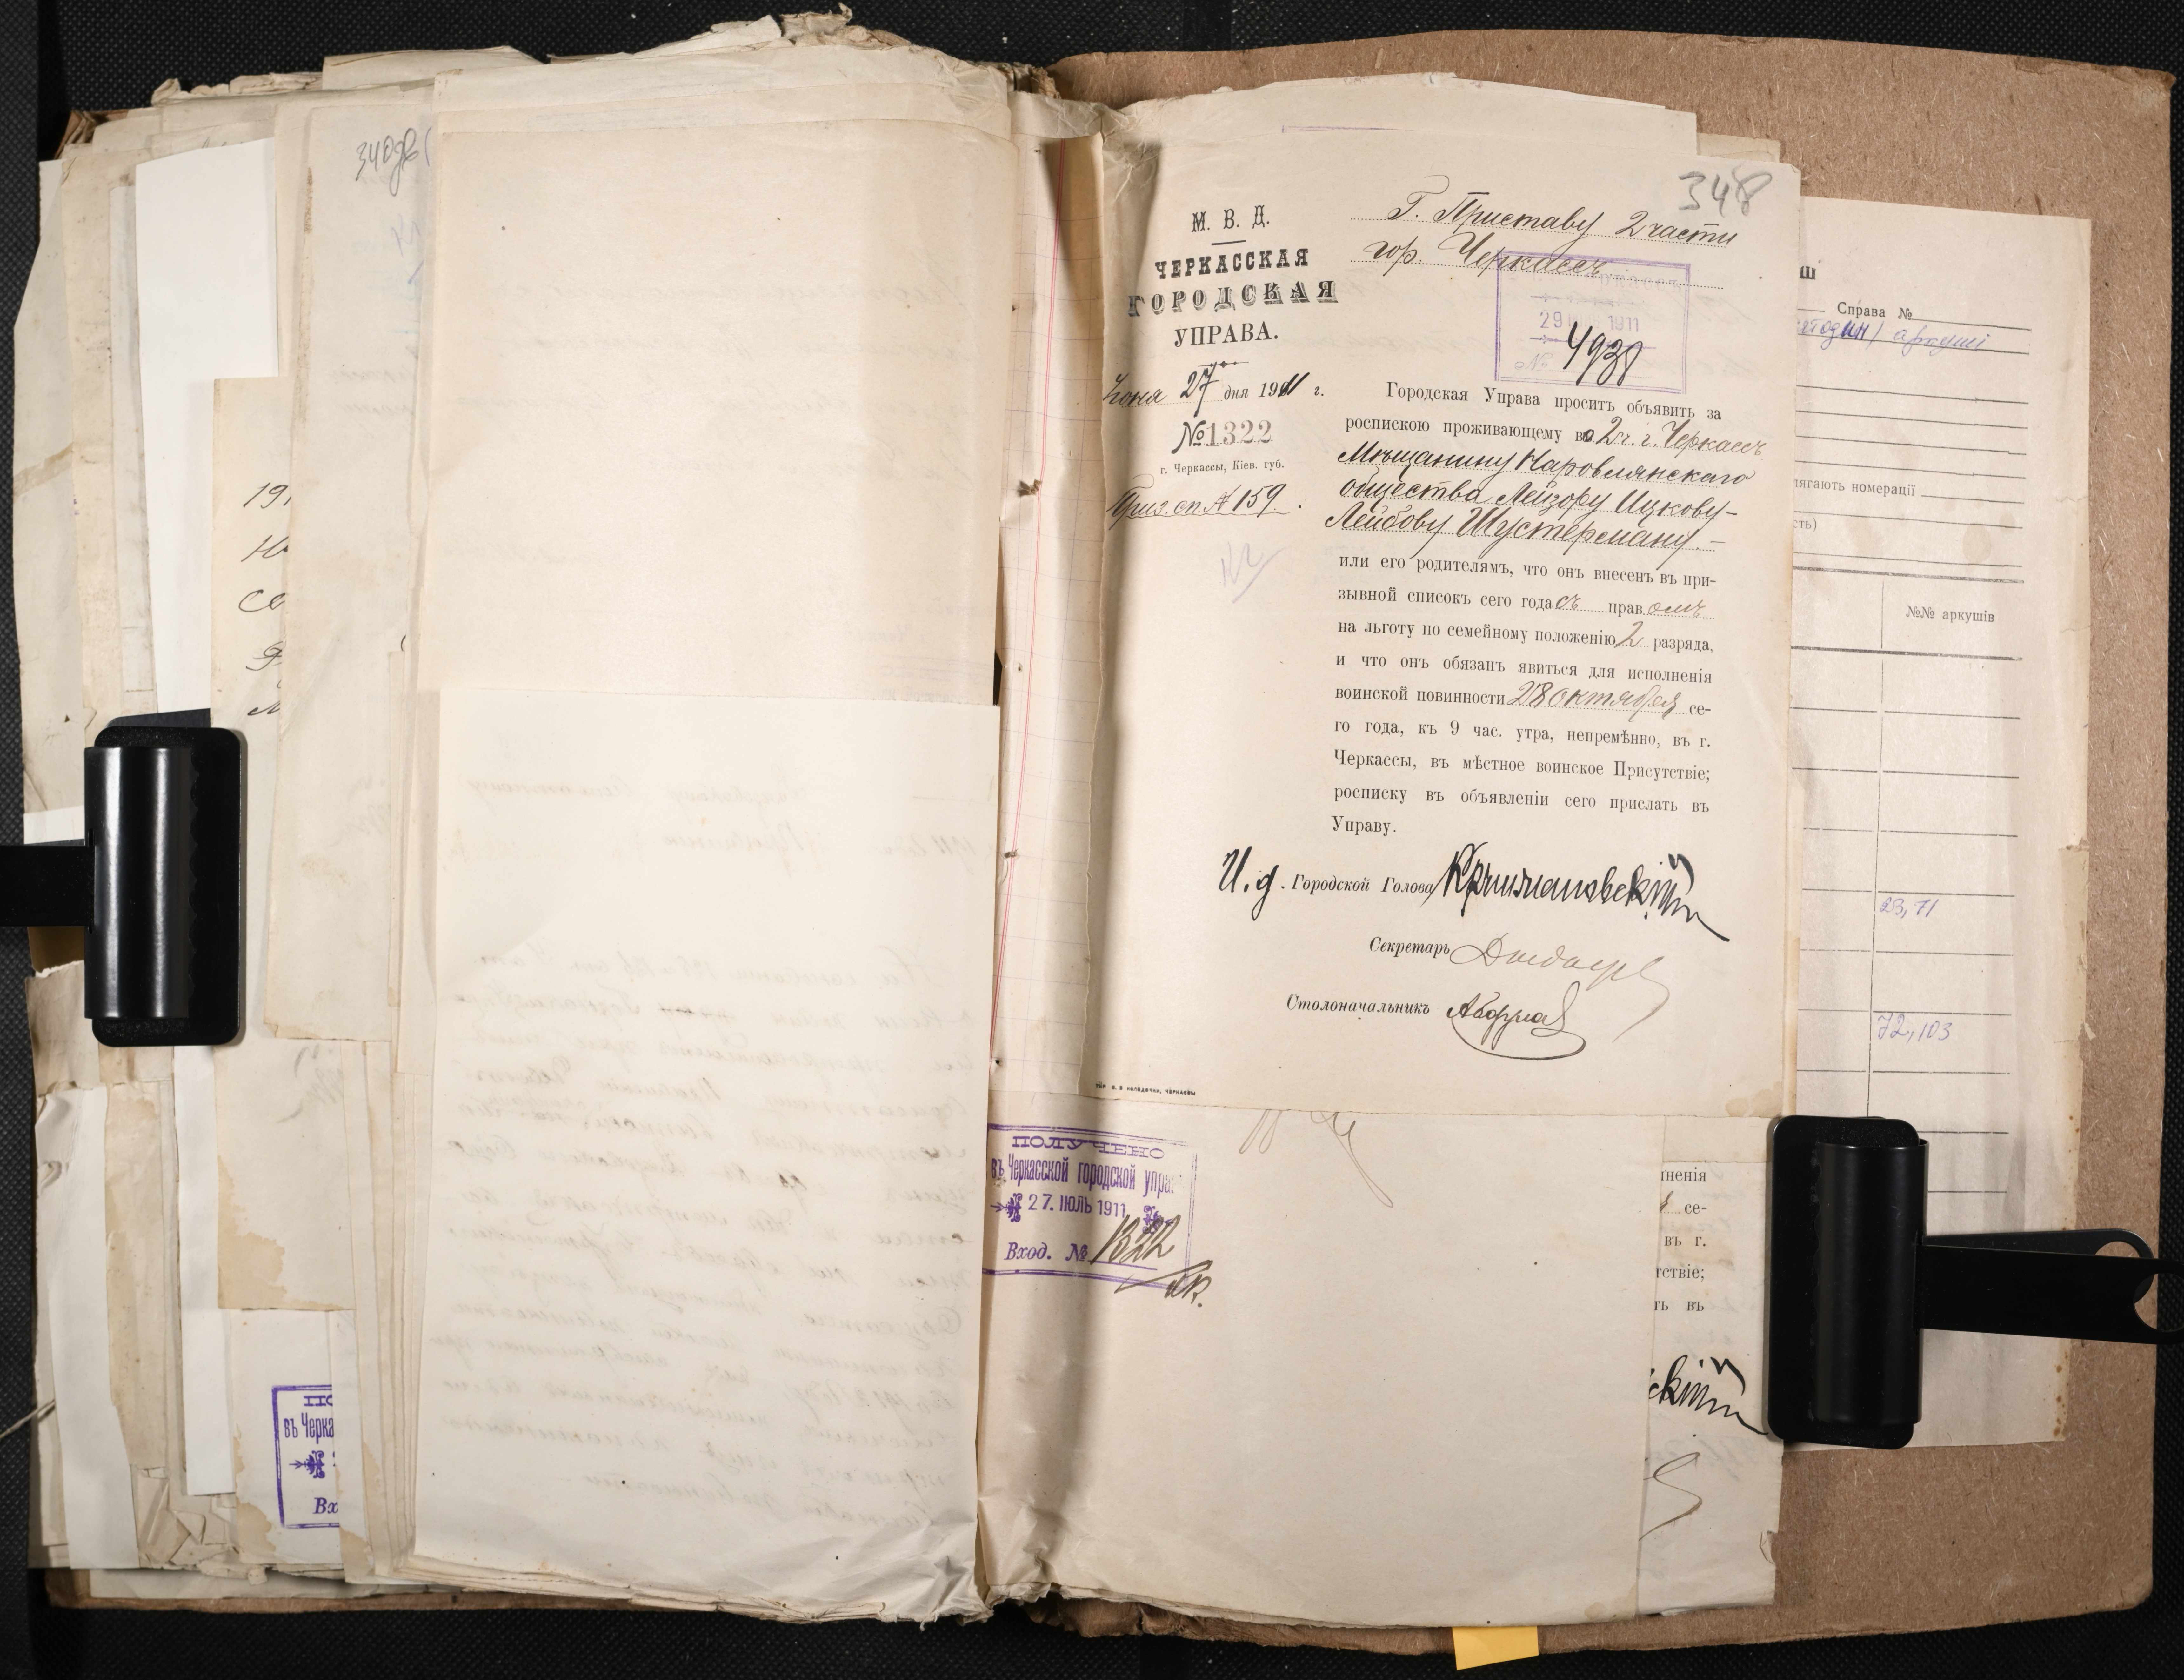 340зв
191
348
Г. Приставу 2 части
гор. Черкассъ
М. В. Д.
ЧЕРКАССКАЯ
ГОРОДСКАЯ
УПРАВА.
Іюня 27 дня 1911 г.
№ 1322
г. Черкассы, Кіев. губ.
Приз. сп. № 159.
29 1911
№ 4938
Городская Управа проситъ объявить за
роспискою проживающему во 2 ч. г. Черкассъ
Мѣщанину Наровлянскаго
общества Лейзору Ицкову-
Лейбову Шустерману. –
или его родителямъ, что онъ внесенъ въ при-
зывной списокъ сего года съ правомъ
на льготу по семейному положенію 2 разряда,
и что онъ обязанъ явиться для исполненія
воинской повинности 28 октября се-
го года, къ 9 час. утра, непремѣнно, въ г.
Черкассы, въ мѣстное воинское Присутствіе;
росписку въ объявленіи сего прислать въ
Управу.
И. д. Городской Голова
Секретарь
Столоначальникъ
ПОЛУЧЕНО
въ Черкасской городской упра
27. ІЮЛЬ 1911
Вход. № 1322
ПО
въ Черка
Вх
ш
Справа №
аркуші
лягають номерації
сть)
№№ аркушів
23, 71
72, 103
лненія
се-
въ г.
тствіе;
ть въ
скій